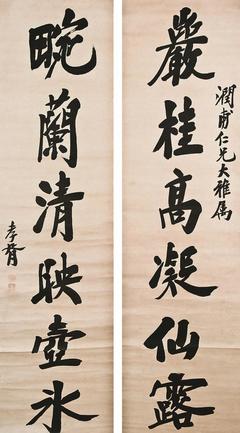 巖桂高凝仙露
潤甫仁兄大雅属
畹蘭清映壺氷
孝胥